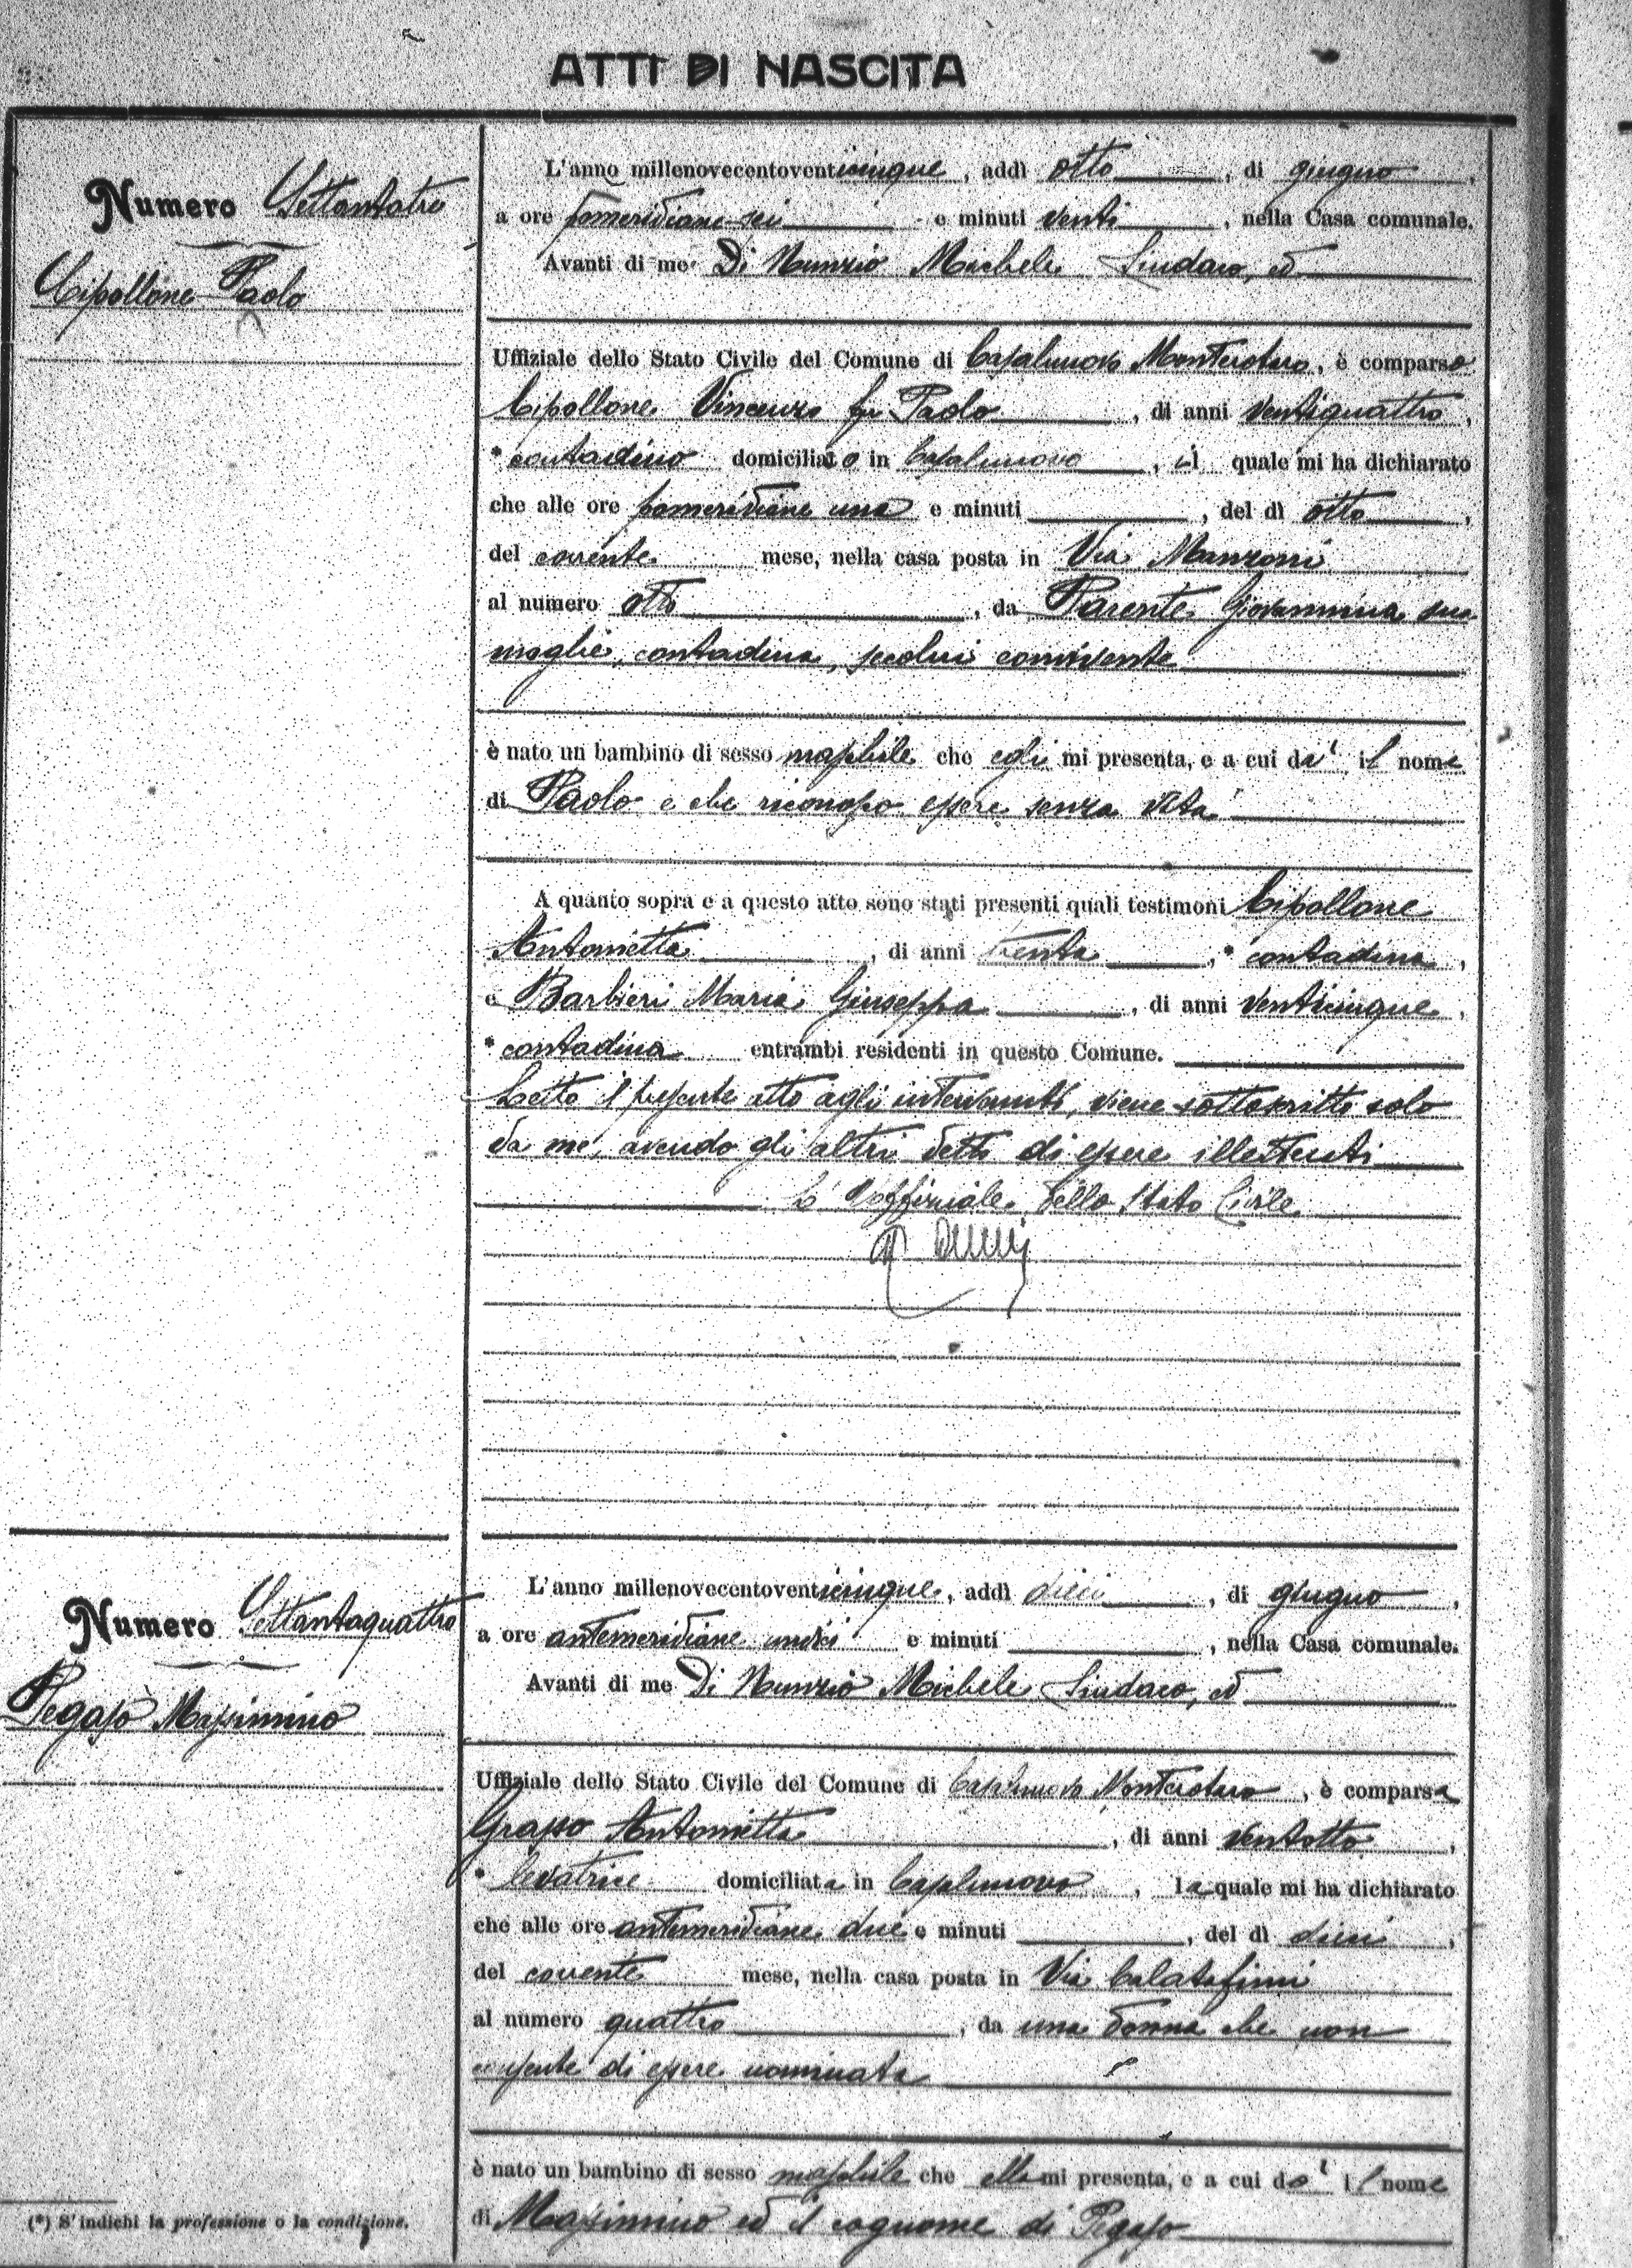 ATTI DI NASCITA
Numero Settantatre
Cipollone Paolo
L'anno millenovecentoventicinque, addì otto, di giugno,
a ore pomeridiane sei e minuti venti, nella Casa comunale.
Avanti di me Di Nunzio Michele Sindaco, ed
Uffiziale dello Stato Civile del Comune di Casalnuovo Monterotaro, è comparso
Cipollone Vincenzo fu Paolo, di anni ventiquattro,
* contadino domiciliato in Casalnuovo, il quale mi ha dichiarato
che alle ore pomeridiane una e minuti, del dì otto,
del corrente mese, nella casa posta in Via Manzoni
al numero otto, da Parente Giovannina sua
moglie, contadina, secolui convivente
è nato un bambino di sesso maschile che egli mi presenta, e a cui dà il nome
di Paolo e che riconosco essere senza vita
A quanto sopra e a questo atto sono stati presenti quali testimoni Cipollone
Antonietta, di anni trenta, * contadina,
e Barbieri Maria Giuseppa, di anni venticinque,
* contadina entrambi residenti in questo Comune.
Letto il presente atto agli intervenuti, viene sottoscritto solo
da me, avendo gli altri detto di essere illetterati
L'Uffiziale dello Stato Civile
Numero Settantaquattro
Pegaso Massimino
L'anno millenovecentoventicinque, addì dieci, di giugno,
a ore antemeridiane undici e minuti, nella Casa comunale.
Avanti di me Di Nunzio Michele Sindaco, ed
Uffiziale dello Stato Civile del Comune di Casalnuovo Monterotaro, è comparsa
Grasso Antonietta, di anni ventotto,
* levatrice domiciliata in Casalnuovo, la quale mi ha dichiarato
che alle ore antemeridiane due e minuti, del dì dieci,
del corrente mese, nella casa posta in Via Calatafimi
al numero quattro, da una donna che non
consente di essere nominata
è nato un bambino di sesso maschile che ella mi presenta, e a cui dà il nome
di Massimino ed il cognome di Pegaso
(*) S'indichi la professione o la condizione.